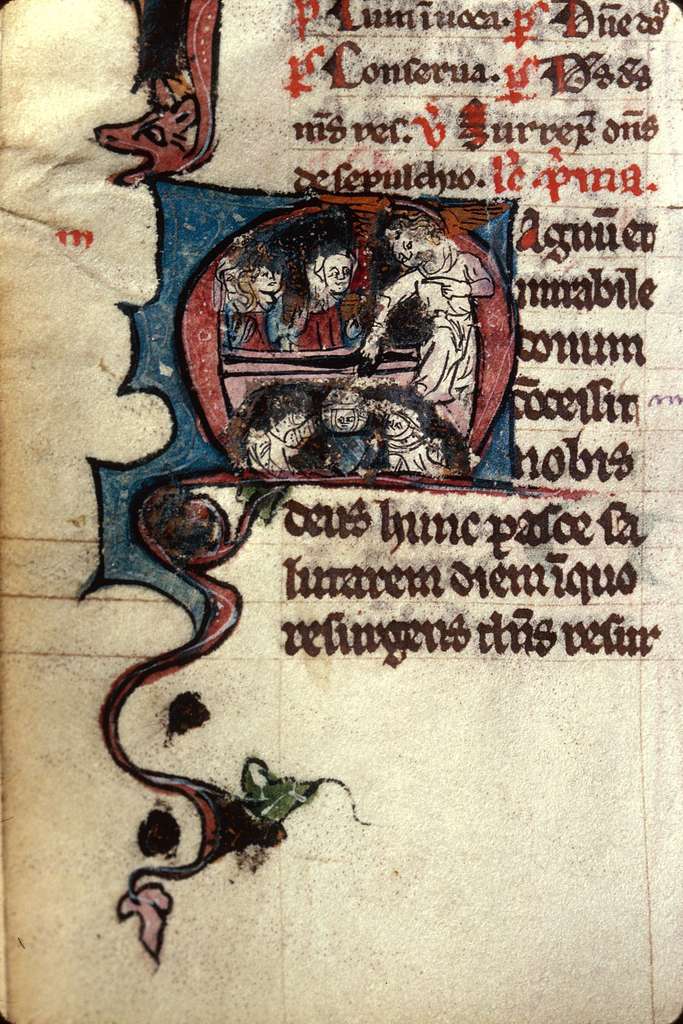 ꝑ Lum īuoca. ꝑs Dñe ds̕
ps Conserua. ps Ds ds
ms̄ res. v̄ Surrex̄ dn̄s
de sepulchro. lc̄ p̄ma.
Magnū et
mirabile
donum
cōcessit
nobis
deus hunc pasce sa
lutarem diem ī quo
resurgens dn̄s resur
m